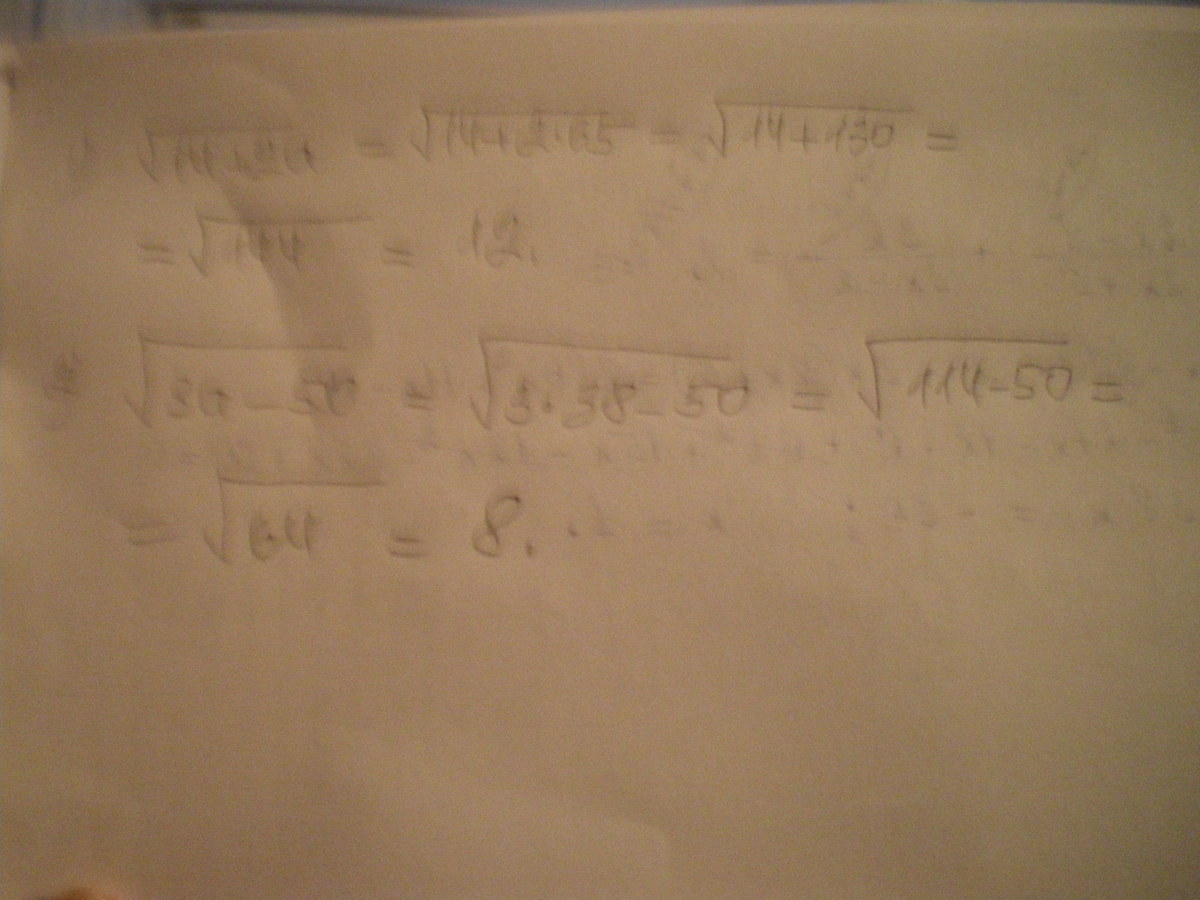 √14+2a = √14+2·65 = √14+130 =
= √144 = 12.
√3a-50 = √3·38-50 = √114-50 =
= √64 = 8.